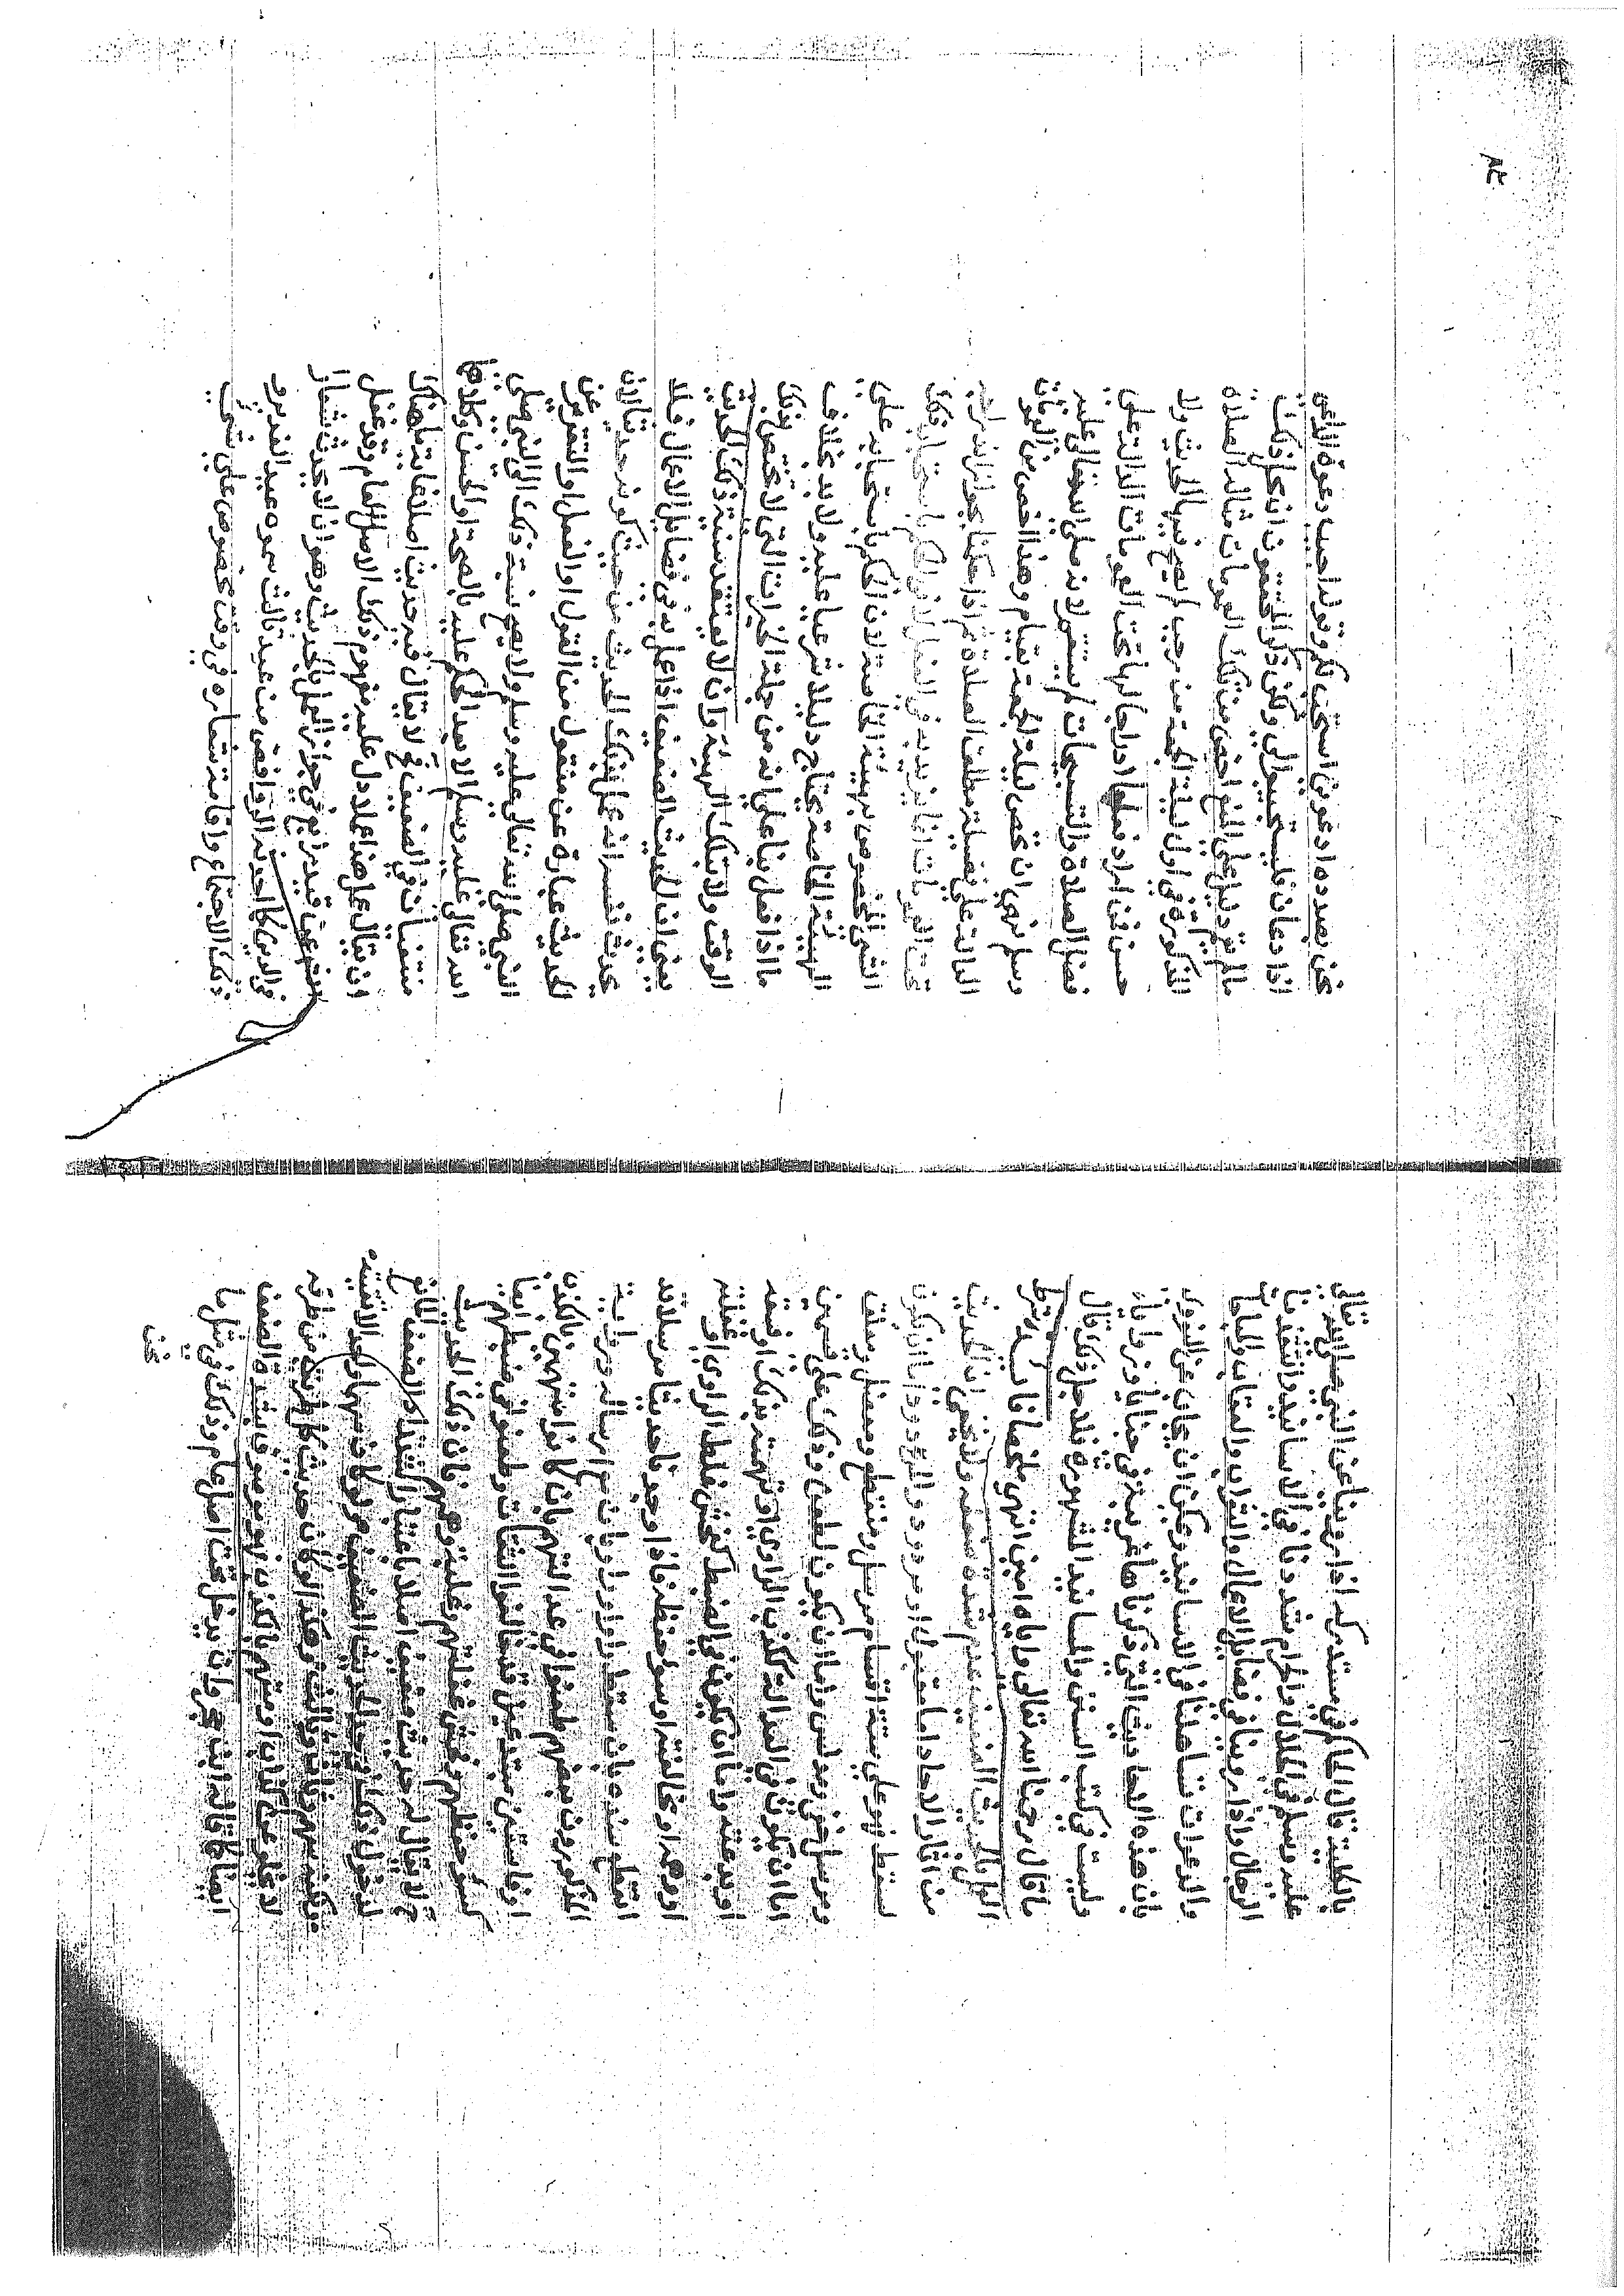 بالكلية قال الحاكم في مستدركه اذا روينا عن النبي صلى الله تعالى
عليه وسلم في الحلال والحرام شددنا في الاسانيد وانتقدنا
الرجال واذا روينا في فضايل الاعمال والثواب والعقاب والمباحات
والدعوات تساهلنا في الاسانيد ويمكن ان يجاب عن النووي
بان هذه الاحاديث التي ذكرناها غريبة في خبايا وزوايا
وليست في كتب السنن والمسانيد المشهورة فلاجل ذلك قال
ما قال رحمنا الله تعالى واياه امين انتهى ملخصا فايدة شرط
العمل بالحديث الضعيف عدم شدة ضعفه ولا يخفى ان الحديث
من الاحاد اما مقبول او مردود والمردود اما ان يكون
لسقط فهو على ستة اقسام مرسل ومنقطع ومعضل ومعلق
ومرسل خفي ومدلس واما ان يكون لطعن وذلك على قسمين
اما ان يكون في العدالة ككذب الراوي او تهمته بذلك او فسقه
او بدعته واما ان يكون في الضبط كفحش غلط الراوي او غفلته
او وهمه او مخالفته او سوء حفظه فاذا وجدنا حديثا مرسلا قد
انقطع سنده بان سقط راو او راويان مع ارساله
المذكورون بعضهم طعنوا في عدالتهم بان كانوا متهمين بالكذب
او فاسقين مبتدعين قد خالفوا الثقات وطعنوا في ضبطهم ايضا
كسوء حفظهم وفحش غفلتهم وغلبة وهمهم فان ذلك الحديث
ح لا يقال له حديث ضعيف اصلا باعتبار اشتداد الضعف المانع
لدخول ذلك في حد الحديث الضعيف
وهكذا لو كان حديث كل طريق من طرقه
لا يخلو عن كذاب او متهم بالكذب فهو موصوف بشدة الضعف
ايضا كما قاله ابن حجر وان يدخل تحت اصل عام وذلك في مثل ما
نحن
نحن بصدده ادعوني استجب لكم وقوله اجيب دعوة الداعي
اذا دعان فليستجيبوا لي ولكن ذكر المحققون ان محل ذلك
ما لم يقم دليل على المنع اخص من تلك العمومات مثاله الصلاة
المذكورة في اول ليلة الجمعة من رجب لم يصح فيها الحديث ولا
حسن فمن اراد فعلها ادراجا لها تحت العمومات الدالة على
فضل الصلاة والتسبيحات لم يستقم لانه صلى الله تعالى عليه
وسلم نهى ان تخص ليلة الجمعة بقيام وهذا اخص من العمومات
الدالة على فضيلة مطلق الصلاة
تحت العمومات انما نريد به في الفعل لا في الحكم باستحباب ذلك
الشي المخصوص بهيئته الخاصة لان الحكم باستحبابه على
الهيئة الخاصة يحتاج دليلا شرعيا عليه ولا بد بخلاف
ما اذا فعل بناء على انه من جملة الخيرات التي لا تختص بذلك
الوقت ولا بتلك الهيئة وان لا يعتقد سنية ذلك الحديث
يعني ان الحديث الضعيف اذا عمل به في فضايل الاعمال فلا
يحدث نفسه انه عمل بذلك الحديث من حيث كونه حديثا لان
الحديث عبارة عن منقول من القول او الفعل او التقرير عن
النبي صلى الله تعالى عليه وسلم ولا يصح نسبة ذلك الى النبي صلى
الله تعالى عليه وسلم الا بعد الحكم عليه بالصحة او الحسن وكلاهما
منتف في الضعيف فح لا يقال فيه حديث اصلا غاية ما هناك
ان يقال عمل هذا عملا دل عليه مفهوم ذلك الاصل العام وقد غفل
قيد رابع في جواز العمل بالحديث وهو ان لا يحدث شعار
في الدين كما احدثه الروافض من عيد ثالث سموه عيد الغدير و
ذلك الاجتماع واقامة شعاره في وقت مخصوص على شي